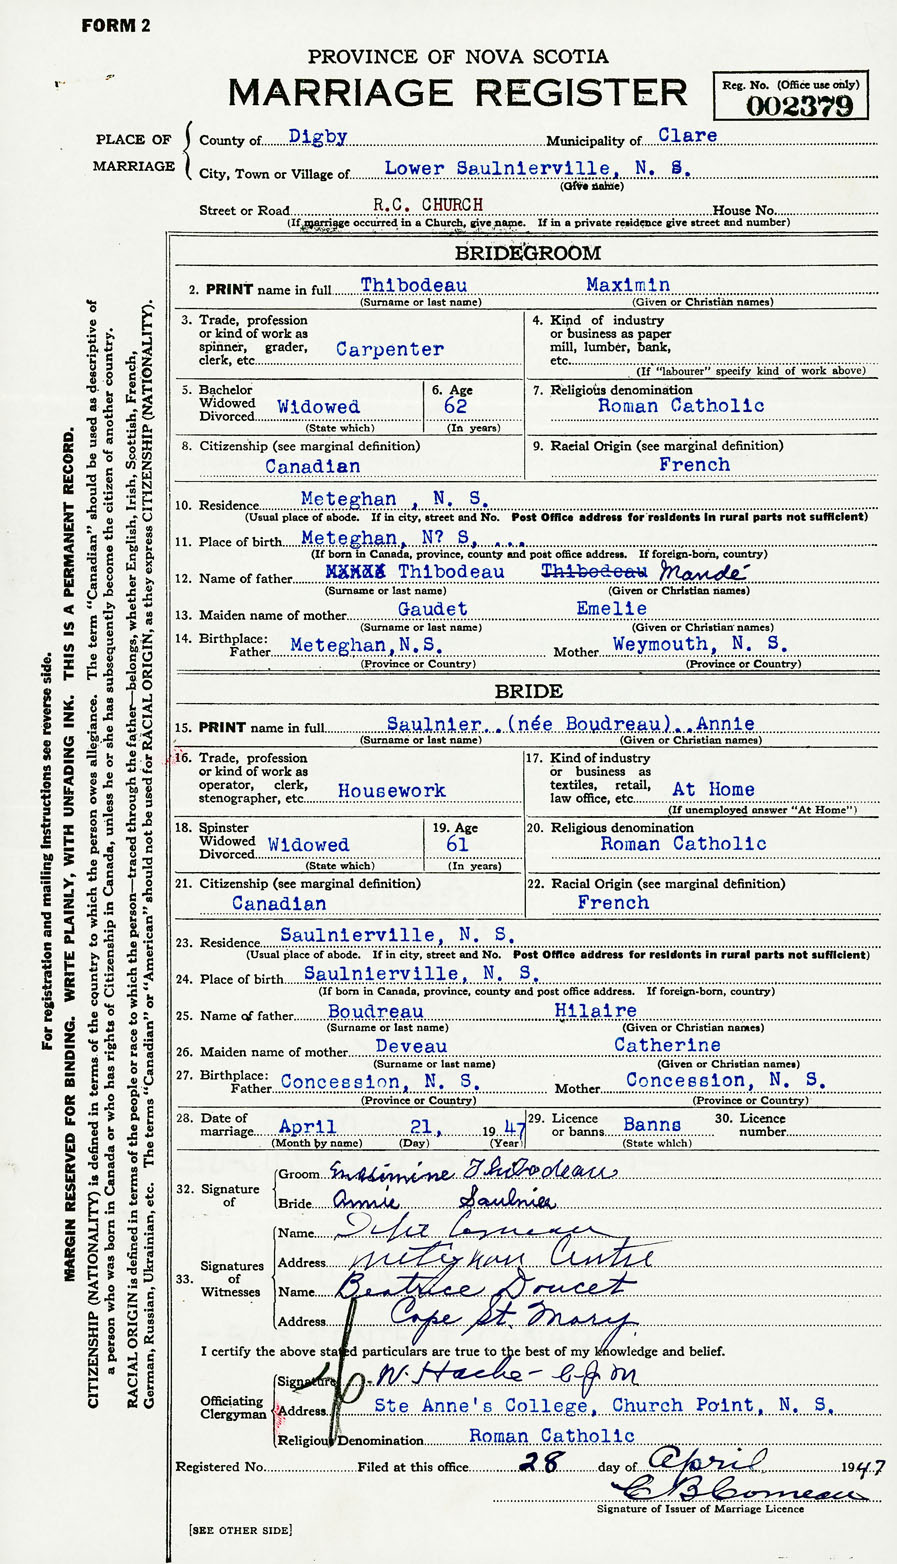 FORM 2
PROVINCE OF NOVA SCOTIA
MARRIAGE REGISTER
Reg. No. (Office use only)
002379
PLACE OF MARRIAGE
County of Digby Municipality of Clare
City, Town or Village of Lower Saulnierville, N. S.
(Give name)
Street or Road R.C. CHURCH House No.
(If marriage occurred in a Church, give name. If in a private residence give street and number)
BRIDEGROOM
2. PRINT name in full Thibodeau Maximin
(Surname or last name) (Given or Christian names)
3. Trade, profession or kind of work as spinner, grader, clerk, etc. Carpenter
4. Kind of industry or business as paper mill, lumber, bank, etc.
(If "labourer" specify kind of work above)
5. Bachelor Widowed Divorced Widowed
(State which)
6. Age 62
(In years)
7. Religious denomination
Roman Catholic
8. Citizenship (see marginal definition)
Canadian
9. Racial Origin (see marginal definition)
French
10. Residence Meteghan , N. S.
(Usual place of abode. If in city, street and No. Post Office address for residents in rural parts not sufficient)
11. Place of birth Meteghan, N? S, . . .
(If born in Canada, province, county and post office address. If foreign-born, country)
12. Name of father XXXXX Thibodeau Thibodeau Mandé
(Surname or last name) (Given or Christian names)
13. Maiden name of mother Gaudet Emelie
(Surname or last name) (Given or Christian names)
14. Birthplace: Father Meteghan, N.S. Mother Weymouth, N. S.
(Province or Country) (Province or Country)
BRIDE
15. PRINT name in full Saulnier (née Boudreau) Annie
(Surname or last name) (Given or Christian names)
16. Trade, profession or kind of work as operator, clerk, stenographer, etc. Housework
17. Kind of industry or business as textiles, retail, law office, etc. At Home
(If unemployed answer "At Home")
18. Spinster Widowed Divorced Widowed
(State which)
19. Age 61
(In years)
20. Religious denomination
Roman Catholic
21. Citizenship (see marginal definition)
Canadian
22. Racial Origin (see marginal definition)
French
23. Residence Saulnierville, N. S.
(Usual place of abode. If in city, street and No. Post Office address for residents in rural parts not sufficient)
24. Place of birth Saulnierville, N. S.
(If born in Canada, province, county and post office address. If foreign-born, country)
25. Name of father Boudreau Hilaire
(Surname or last name) (Given or Christian names)
26. Maiden name of mother Deveau Catherine
(Surname or last name) (Given or Christian names)
27. Birthplace: Father Concession, N. S. Mother Concession, N. S.
(Province or Country) (Province or Country)
28. Date of marriage April 21, 1947
(Month by name) (Day) (Year)
29. Licence or banns Banns
(State which)
30. Licence number
32. Signature of
Groom Maximine Thibodeau
Bride Annie Saulnier
33. Signatures of Witnesses
Name Comeau
Address Meteghan Centre
Name Beatrice Doucet
Address Cape St. Mary
I certify the above stated particulars are true to the best of my knowledge and belief.
Officiating Clergyman
Signature W. Hache - c.j.m
Address Ste Anne's College, Church Point, N. S.
Religious Denomination Roman Catholic
Registered No. Filed at this office 28 day of April 1947
C B Comeau
Signature of Issuer of Marriage Licence
[SEE OTHER SIDE]
For registration and mailing instructions see reverse side.
MARGIN RESERVED FOR BINDING. WRITE PLAINLY, WITH UNFADING INK. THIS IS A PERMANENT RECORD.
CITIZENSHIP (NATIONALITY) is defined in terms of the country to which the person owes allegiance. The term "Canadian" should be used as descriptive of
a person who was born in Canada or who has rights of Citizenship in Canada, unless he or she has subsequently become the citizen of another country.
RACIAL ORIGIN is defined in terms of the people or race to which the person—traced through the father—belongs, whether English, Irish, Scottish, French,
German, Russian, Ukrainian, etc. The terms "Canadian" or "American" should not be used for RACIAL ORIGIN, as they express CITIZENSHIP (NATIONALITY).